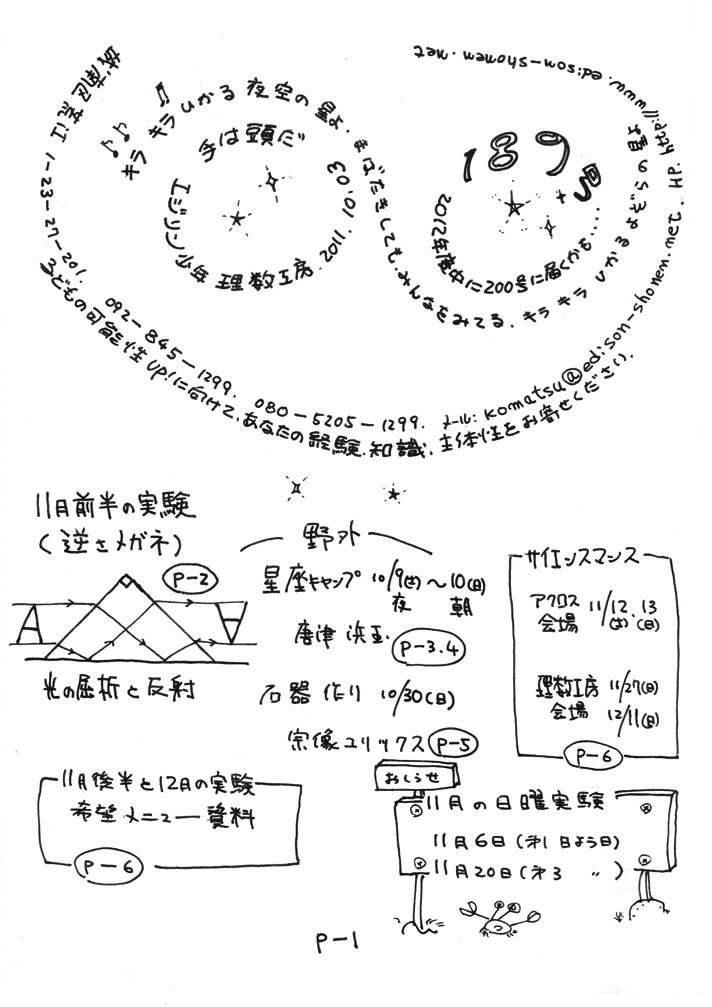 189号
2012年度中に200号に届くかも....
手は頭だ
エジソン少年理数工房.2011.10.03
キラキラひかる夜空の星よ.まばたきしても.みんなをみてる.キラキラひかる
1-23-27-201. 092-845-1299. 080-5205-1299. メール:komatsu@edison-shonen.net. HP.http://www.edison-shonen.net
子どもの可能性UP!に向けて,あなたの経験.知識.主体性をお寄せください.
11月前半の実験
(逆さメガネ)
P-2
A
A
光の屈折と反射
野外
星座キャンプ 10/9(土)夜〜10(日)朝
唐津 浜玉.
P-3.4
石器作り 10/30(日)
宗像ユリックス P-5
サイエンスマンス
アクロス会場 11/12.13
(土)(日)
理数工房会場 11/27(日)
12/11(日)
P-6
11月後半と12月の実験
希望メニュー資料
P-6
おしらせ
11月の日曜実験
11月6日(第1日よう日)
11月20日(第3 〃 )
P-1